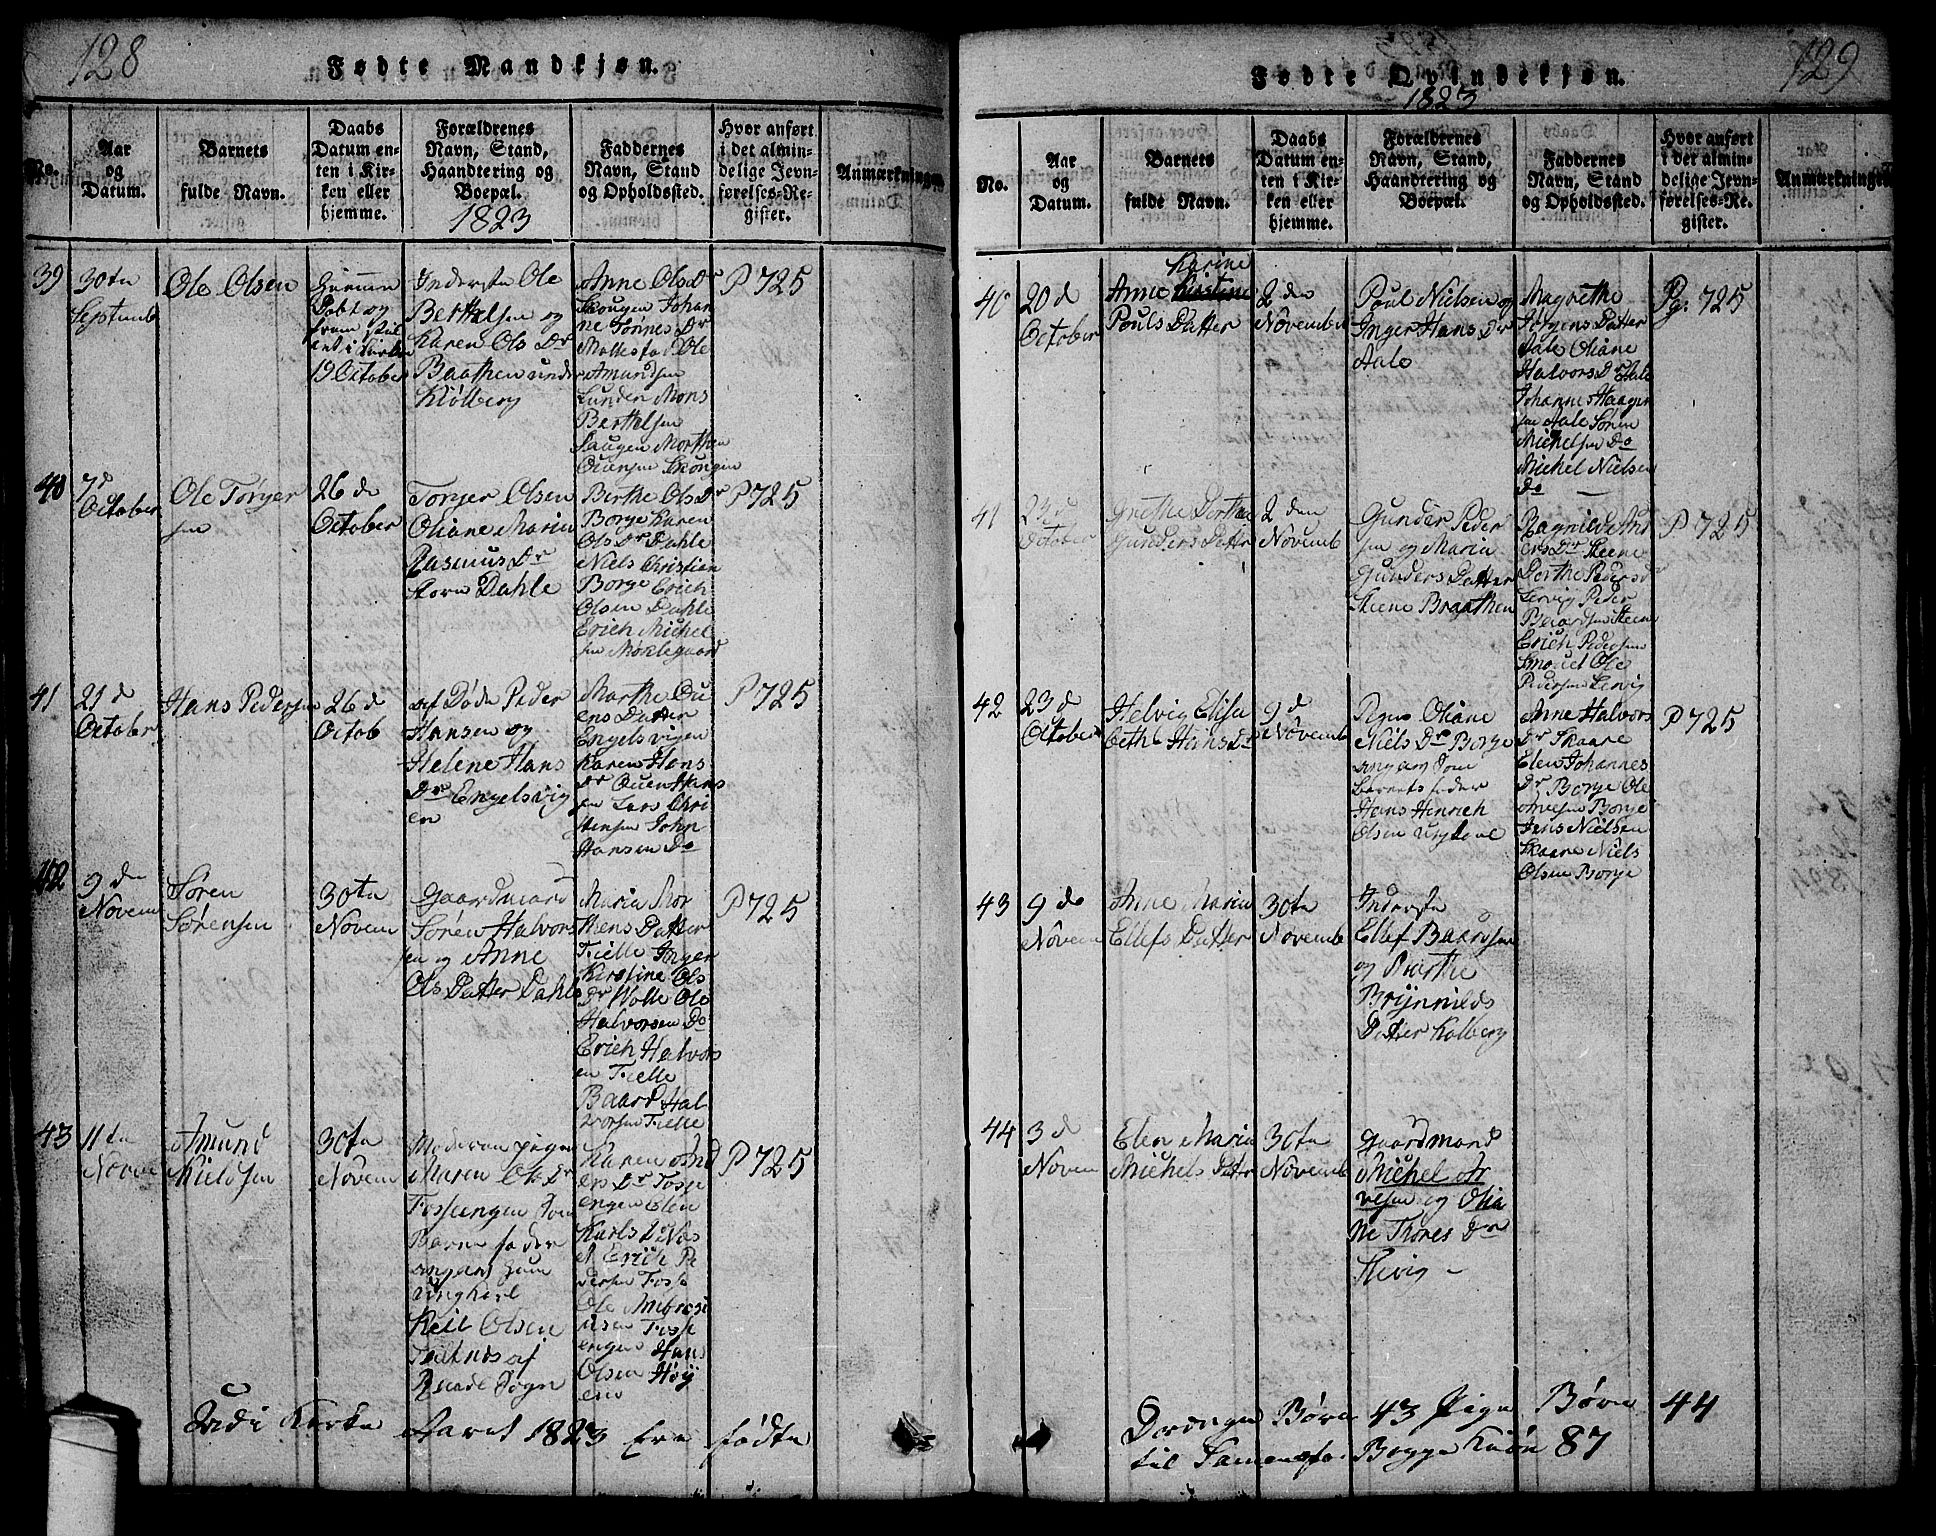 128
Fødte Mandkjøn.
No.
Aar
og
Datum.
Barnets
fulde Navn.
Daabs
Datum en-
ten i Kir-
ken eller
hjemme.
Forældrenes
Navn, Stand,
Haandtering og
Boepæl.
1823
Faddernes
Navn, Stand
og Opholdssted.
Hvor anført
i det almin-
delige Jevn-
førelses-Re-
gister.
Anmærkninger
39
30te
Septemb
Ole Olsen
Hiemme
Døbt og
frem stil
et i Kirken
19 October
Inderste Ole
Berthelsen og
Karen Ols Dr
Baathen under
Kiølberg
Anne Ols Dr
Skougen Johan
ne Tønnes Dr
Mollestad Ole
Amundsen
Lunder Mons
Berthelsen
Haugen Morthen
Ouensen Skougen
P 725
40
7 d
October
Ole Torger
sen
26 de
October
Torger Olsen
Oliane Maria
Rasmus Dr
Dahle
Berthe Ols Dr
Borge Karen
Ols Dr Dahle
Niels Christian
Borge Erich
Olsen Dahle
Erich Michel
sen Moklegaard
P 725
41
21 d
October
Hans Pedersen
26 d
Octob
Død Peder
Hansen og
Helene Hans
Dr Engelsvig
en
Marthe Ou
ens Datter
Engelsvigen
Karen Hans
Dr Ouen Hans
sen Lars Chri
stensen John
Hansen Do
P 725
42
9 de
Novem
Søren
Sørensen
30te
Novem
Gaardmand
Søren Halvors
en og Anne
Ols Datter Dahle
Maria Mor
thens Datter
Fielle Torger
Kirstine Ols
Dr Wolle Ole
Halvorsen Do
Erich Halvors
en Fielle
Baard Hal
vorsen Fielle
P 725
43
11te
Novem
Amund
Kielsen
30te
Novem
Moderen pigen
Maren Ols Dr
Fosseengen som
Barne fader
angav hun
ungkarl
Kiil Olsen
af
Sogn
Karen And
ers Dr Fosse
engen Elen
Karls D
Erich Pe
dersen Fosse
Ole Ambrosi
usen Fosse
engen Hans
Olsen Høy
en
P 725
Kirke Aaret 1823 Ere fødte
129
Fødte Qvindekjøn.
1823
No.
Aar
og
Datum.
Barnets
fulde Navn.
Daabs
Datum en-
ten i Kir-
ken eller
hjemme.
Forældrenes
Navn, Stand,
Haandtering og
Boepæl.
Faddernes
Navn, Stand
og Opholdssted.
Hvor anført
i det almin-
delige Jevn-
førelses-Re-
gister.
Anmærkninger
40
20 d
October
Karine
Anne Kirstine
Pouls Datter
2 den
Novembr
Poul Nielsen og
Inger Hans Dr
Aale
Magrethe
Jørgens Datter
Aale Oliane
Halvors Dr Aale
Johannes Haager
sen Aale Søren
Michelsen Do
Michel Nielsen
Do —
Pg. 725
41
23 d
October
Grethe Dorthea
Gunders Datter
2 den
Novemb
Gunder Peder
sen og Maria
Gunders Datter
Skeene Braathen
Ragnild And
ers Dr Skeene
Dorthe Peders Dr
Lervig Peder
Baardsen Skeen
Erich Pedersen
Ole
Pedersen Lervig
P 725
42
23 d
October
Helvig Elisa
Beth Hans Dr
9 d
Novemb
Pigen Oliane
Niels Dr Borge
angav som
barnets fader
Hans Hinrich
Olsen ungkarl
Anne Halvors
Dr Skaare
Elen Johannes
Dr Borge Ole
Arvesen Borge
Jens Nielsen
Skaare Niels
Olsen Borge
P 725
43
9 de
Novem
Anne Maria
Ellefs Datter
30te
Novemb
Inderste
Ellef Baardsen
og Marthe
Brynnilds
Datter Kolberg
44
3 d
Novem
Elen Maria
Michels Datter
30te
Novemb
Gaardmand
Michel Ar
vesen og Olia
ne Thores Dr
Skevig —
Drenge Børn 43 Pige Børn 44
til Sammen for Begge Kiøn 87